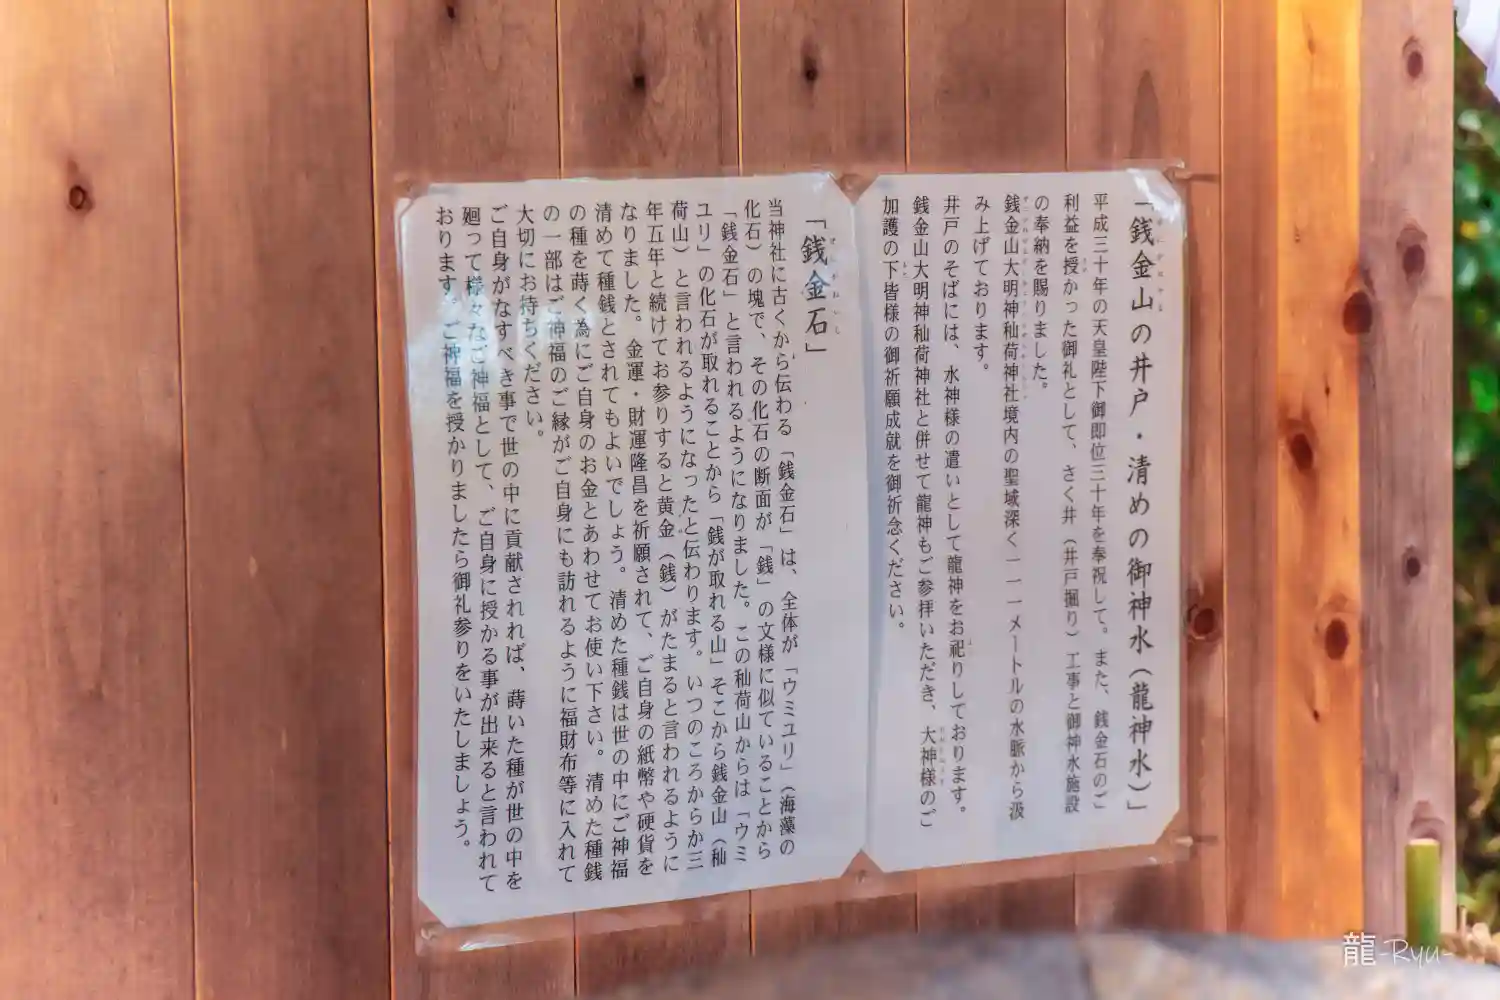 「銭金山の井戸・清めの御神水（龍神水）」
平成三十年の天皇陛下御即位三十年を奉祝して。また、銭金石のご
利益を授かった御礼として、さく井（井戸掘り）工事と御神水施設
の奉納を賜りました。
銭金山大明神秈荷神社境内の聖域深く一一一メートルの水脈から汲
み上げております。
井戸のそばには、水神様の遣いとして龍神をお祀りしております。
銭金山大明神秈荷神社と併せて龍神もご参拝いただき、大神様のご
加護の下皆様の御祈願成就を御祈念ください。
「銭金石」
当神社に古くから伝わる「銭金石」は、全体が「ウミユリ」（海藻の
化石）の塊で、その化石の断面が「銭」の文様に似ていることから
「銭金石」と言われるようになりました。この秈荷山からは「ウミ
ユリ」の化石が取れることから「銭が取れる山」そこから銭金山（秈
荷山）と言われるようになったと伝わります。いつのころからか三
年五年と続けてお参りすると黄金（銭）がたまると言われるように
なりました。金運・財運隆昌を祈願されて、ご自身の紙幣や硬貨を
清めて種銭とされてもよいでしょう。清めた種銭は世の中にご神福
の種を蒔く為にご自身のお金とあわせてお使い下さい。清めた種銭
の一部はご神福のご縁がご自身にも訪れるように福財布等に入れて
大切にお持ちください。
ご自身がなすべき事で世の中に貢献されれば、蒔いた種が世の中を
廻って様々なご神福として、ご自身に授かる事が出来ると言われて
おります。ご神福を授かりましたら御礼参りをいたしましょう。
龍-Ryu-